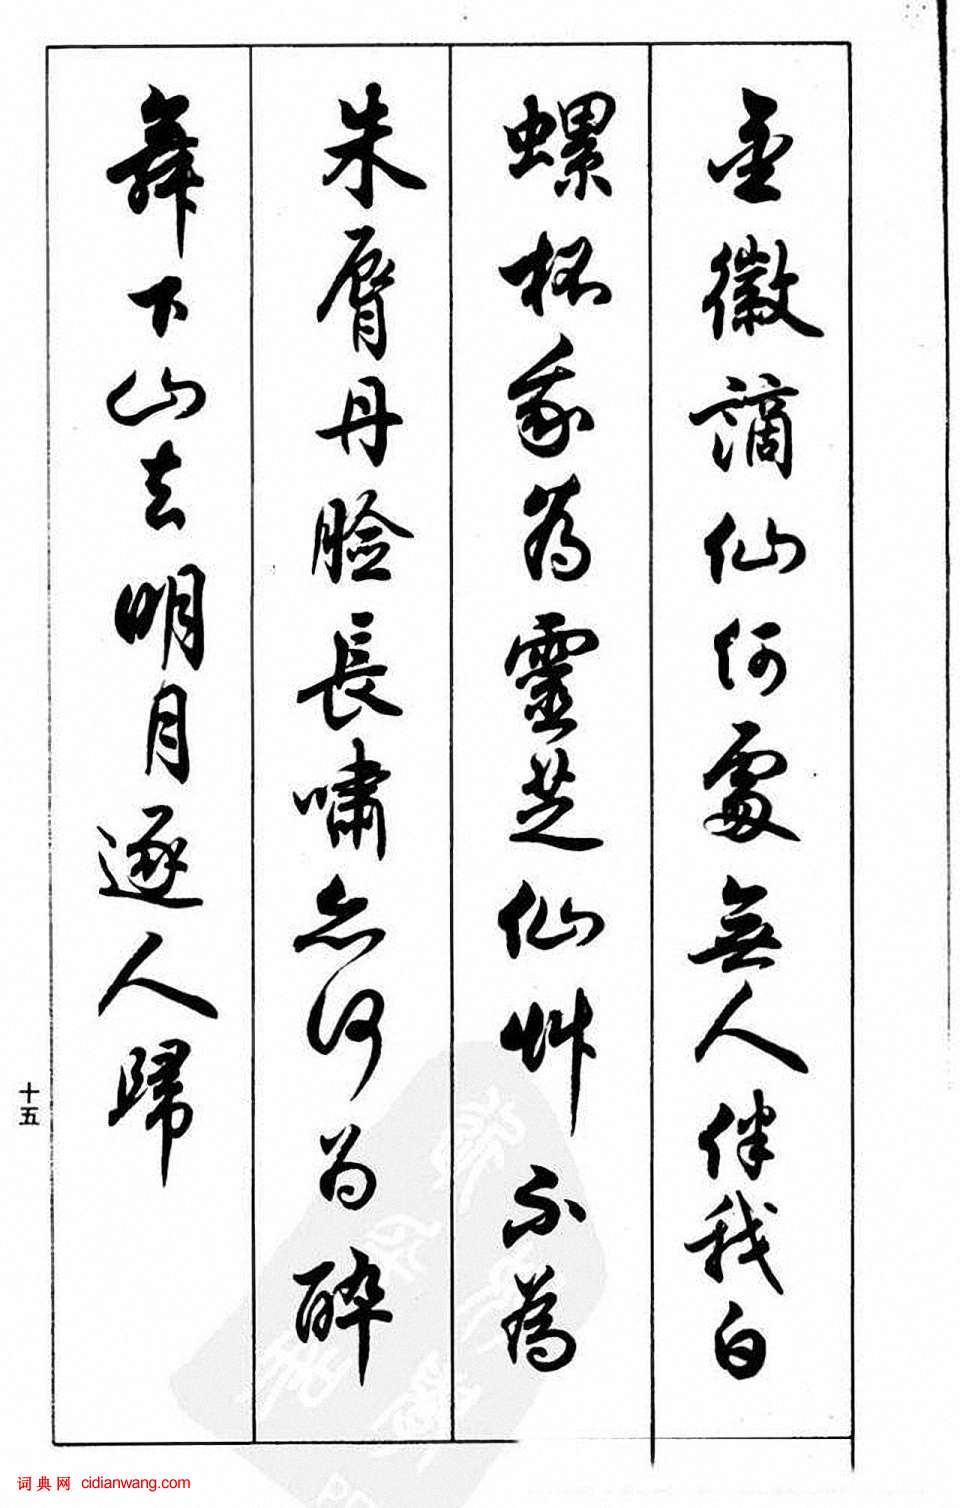 金徽謫仙何處無人伴我白
螺杯我為靈芝仙艸不為
朱脣丹臉長嘯亦何為醉
舞下山去明月逐人歸
十五
词典网 cidianwang.com